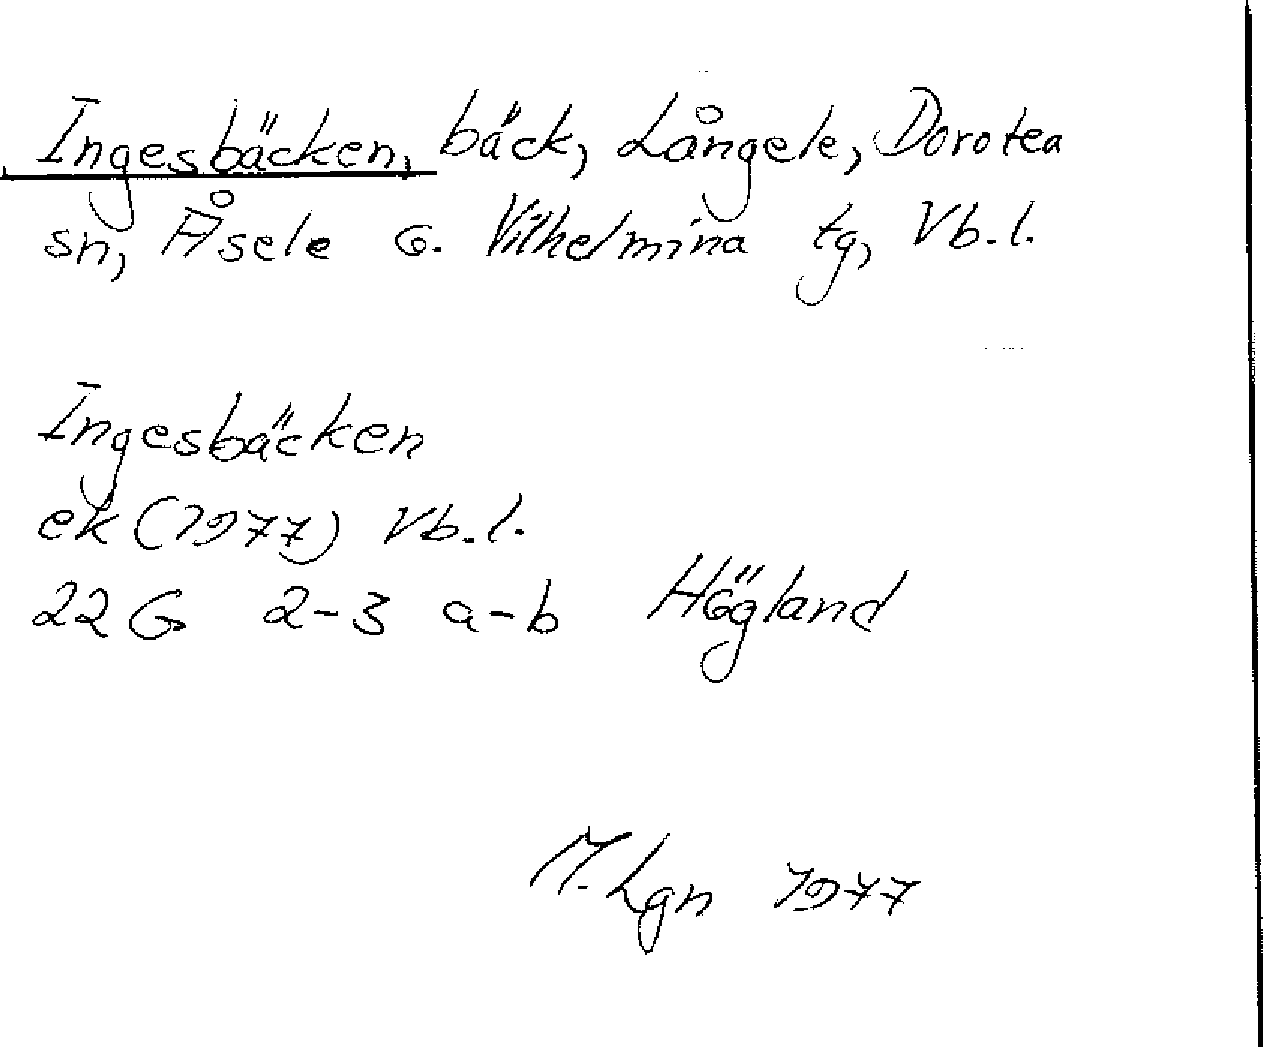 Ingesbäcken, bäck, Långsele, Dorotea
sn, Åsele o. Vilhelmina tg, Vb.l.
Ingesbäcken
ek (1977) Vb.l.
22G 2-3 a-b Högland
M. Lgn 1977